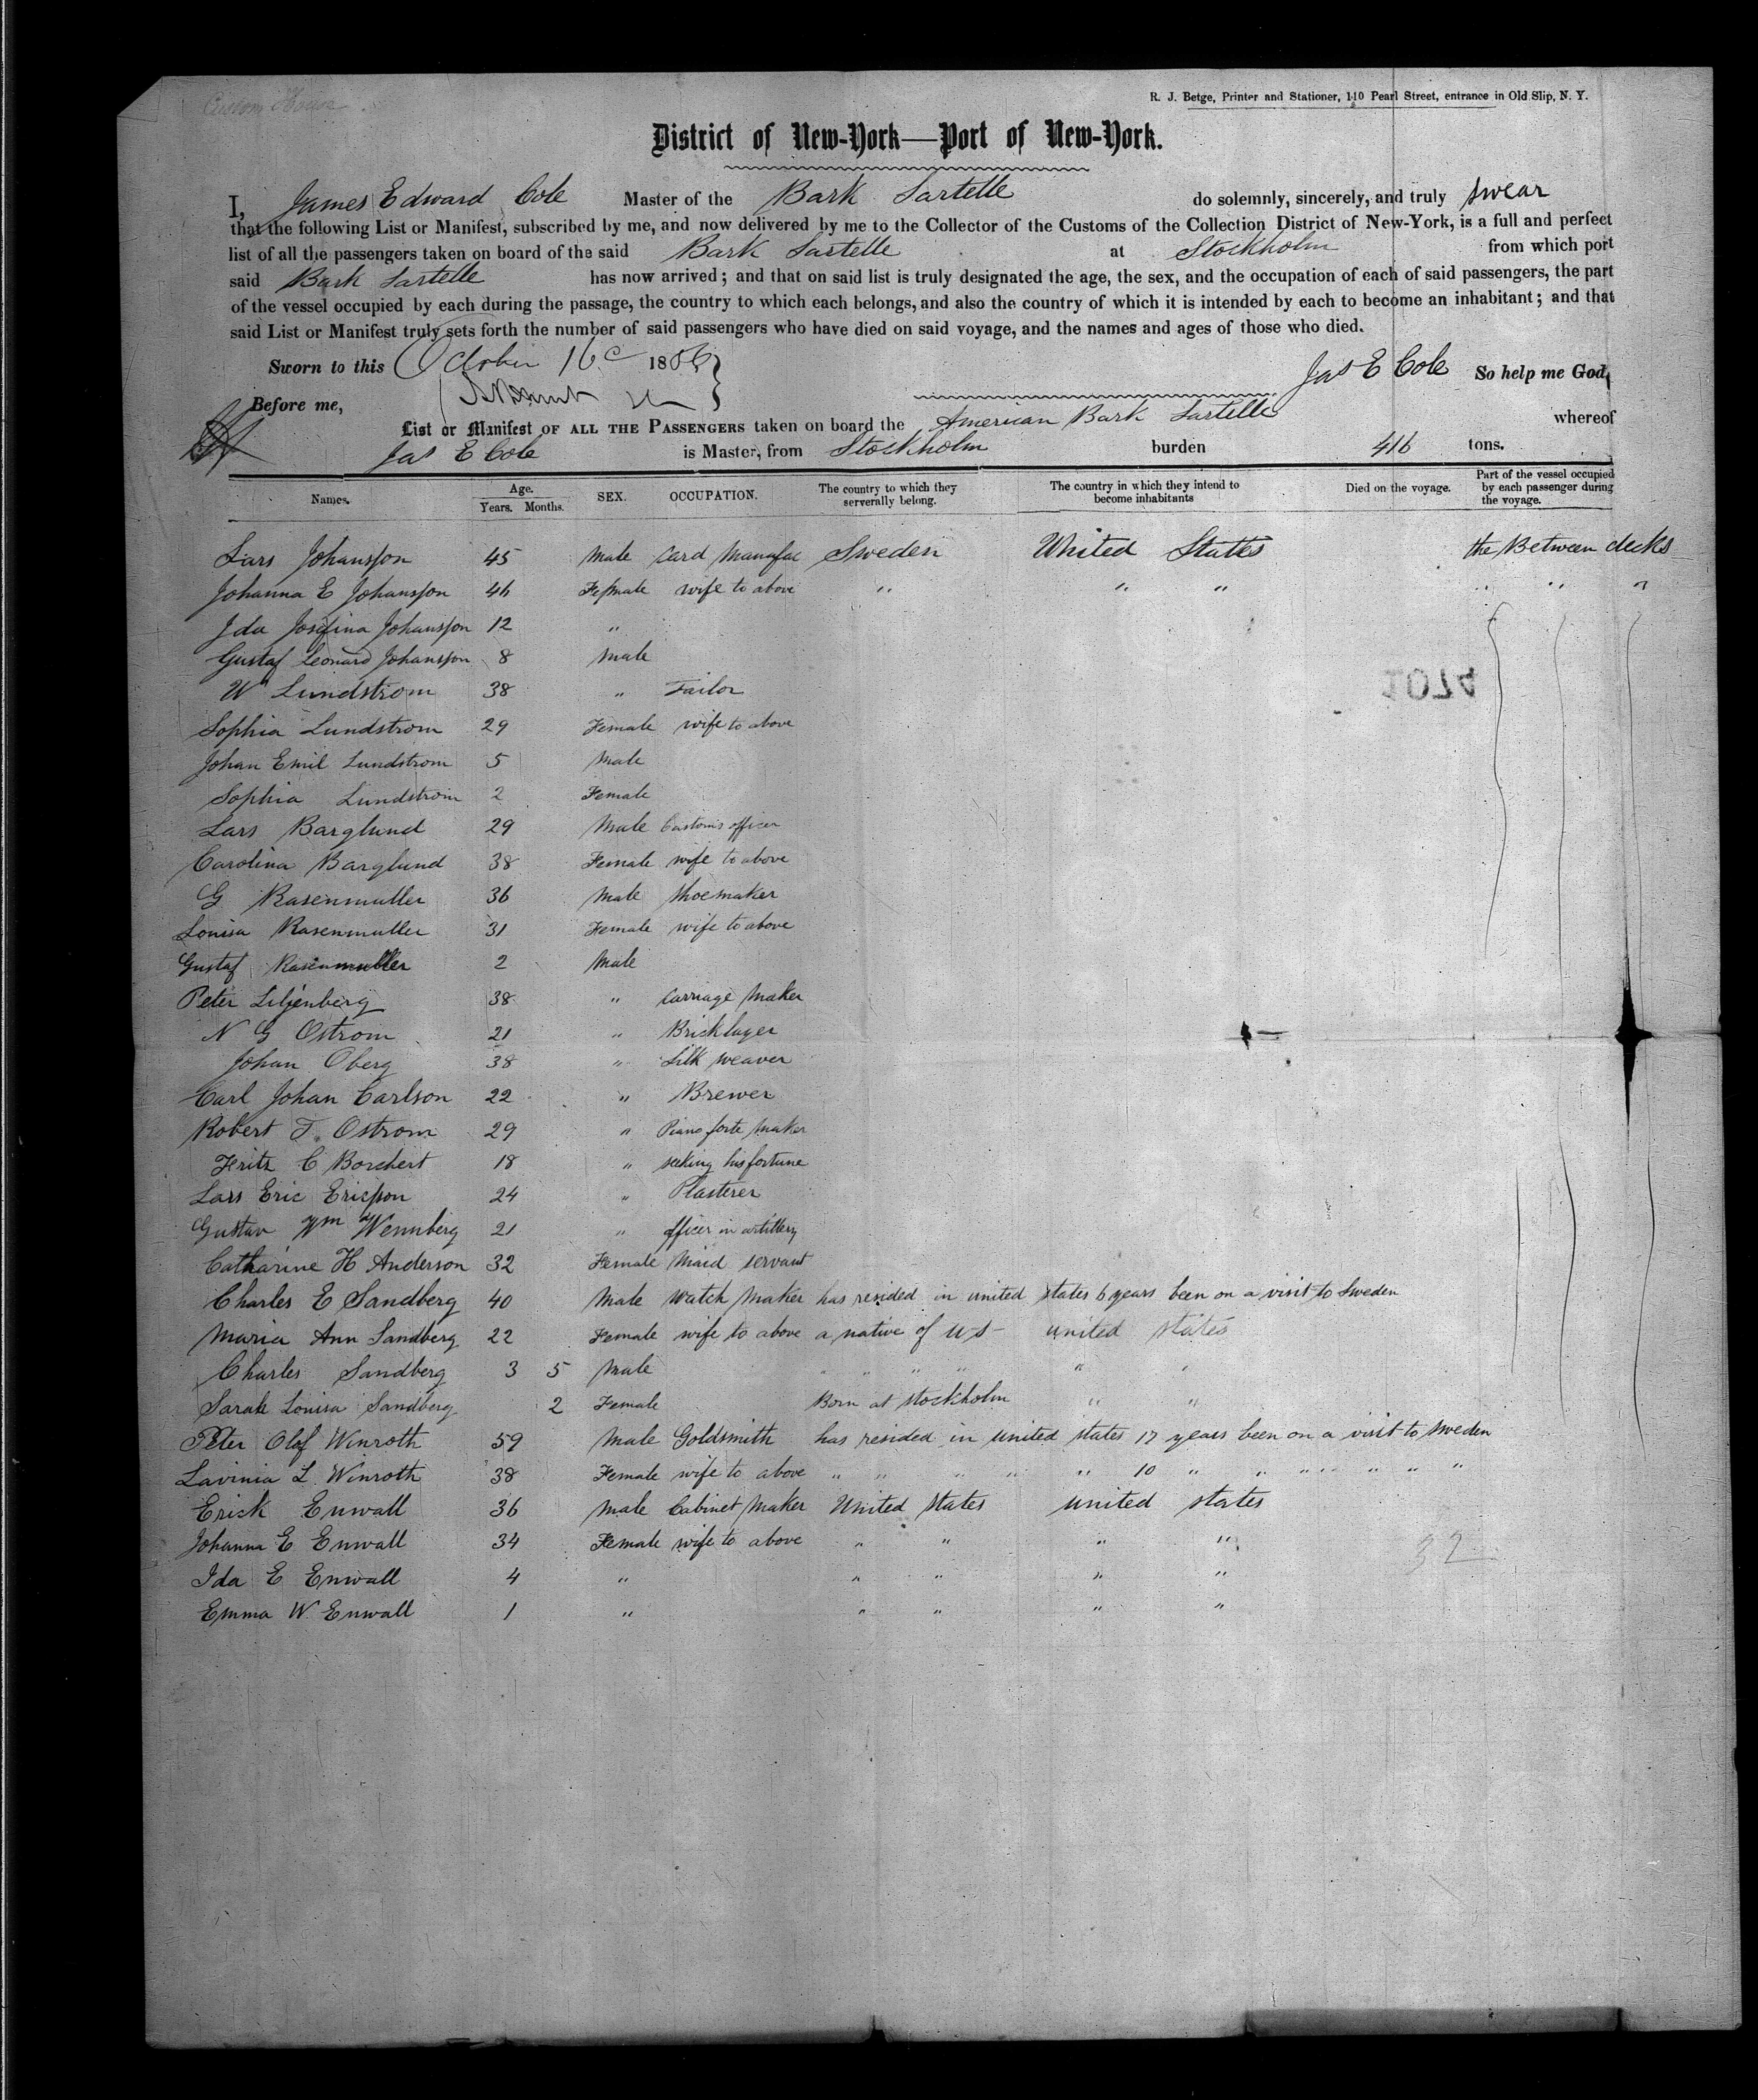 Custom House
R. J. Betge, Printer and Stationer, 110 Pearl Street, entrance in Old Slip, N. Y.
District of New-York—Port of New-York.
I, James Edward Cole Master of the Bark Sartelle do solemnly, sincerely, and truly swear
that the following List or Manifest, subscribed by me, and now delivered by me to the Collector of the Customs of the Collection District of New-York, is a full and perfect
list of all the passengers taken on board of the said Bark Sartelle at Stockholm from which port
said Bark Sartelle has now arrived; and that on said list is truly designated the age, the sex, and the occupation of each of said passengers, the part
of the vessel occupied by each during the passage, the country to which each belongs, and also the country of which it is intended by each to become an inhabitant; and that
said List or Manifest truly sets forth the number of said passengers who have died on said voyage, and the names and ages of those who died.
Sworn to this October 16 1856 Jas E Cole So help me God,
Before me,
List or Manifest OF ALL THE PASSENGERS taken on board the American Bark Sartelle whereof
Jas E Cole is Master, from Stockholm burden 416 tons.
Names. Age. Years. Months. SEX. OCCUPATION. The country to which they serverally belong. The country in which they intend to become inhabitants Died on the voyage. Part of the vessel occupied by each passenger during the voyage.
Lars Johansson 45 Male Card Manufac Sweden United States the Between decks
Johanna E Johansson 46 Female wife to above " " " " " "
Ida Josefina Johansson 12 "
Gustaf Leonard Johansson 8 Male
1074
Wm Lundstrom 38 " Tailor
Sophia Lundstrom 29 Female wife to above
Johan Emil Lundstrom 5 Male
Sophia Lundstrom 2 Female
Lars Barglund 29 Male Customs officer
Carolina Barglund 38 Female wife to above
G Rasenmuller 36 Male Shoemaker
Louisa Rasenmuller 31 Female wife to above
Gustaf Rasenmuller 2 Male
Peter Liljenberg 38 " Carriage Maker
N G Ostrom 21 " Bricklayer
Johan Oberg 38 " Silk weaver
Carl Johan Carlson 22 " Brewer
Robert T. Ostrom 29 " Piano forte maker
Fritz C Borchert 18 " seeking his fortune
Lars Eric Ericsson 24 " Plasterer
Gustav Wm Wennberg 21 " officer in artillery
Catharine H Anderson 32 Female Maid servant
Charles E Sandberg 40 Male Watch Maker has resided in united states 6 years been on a visit to Sweden
Maria Ann Sandberg 22 Female wife to above a native of U S united states
Charles Sandberg 3 5 Male " " " " "
Sarah Louisa Sandberg 2 Female Born at Stockholm " "
Peter Olof Winroth 59 Male Goldsmith has resided in united states 17 years been on a visit to Sweden
Lavinia L Winroth 38 Female wife to above " " " " " 10 " " " " " " "
Erick Enwall 36 Male Cabinet Maker United States united states
Johanna E Enwall 34 Female wife to above " " " "
32
Ida E Enwall 4 " " " " "
Emma W. Enwall 1 " " " " "